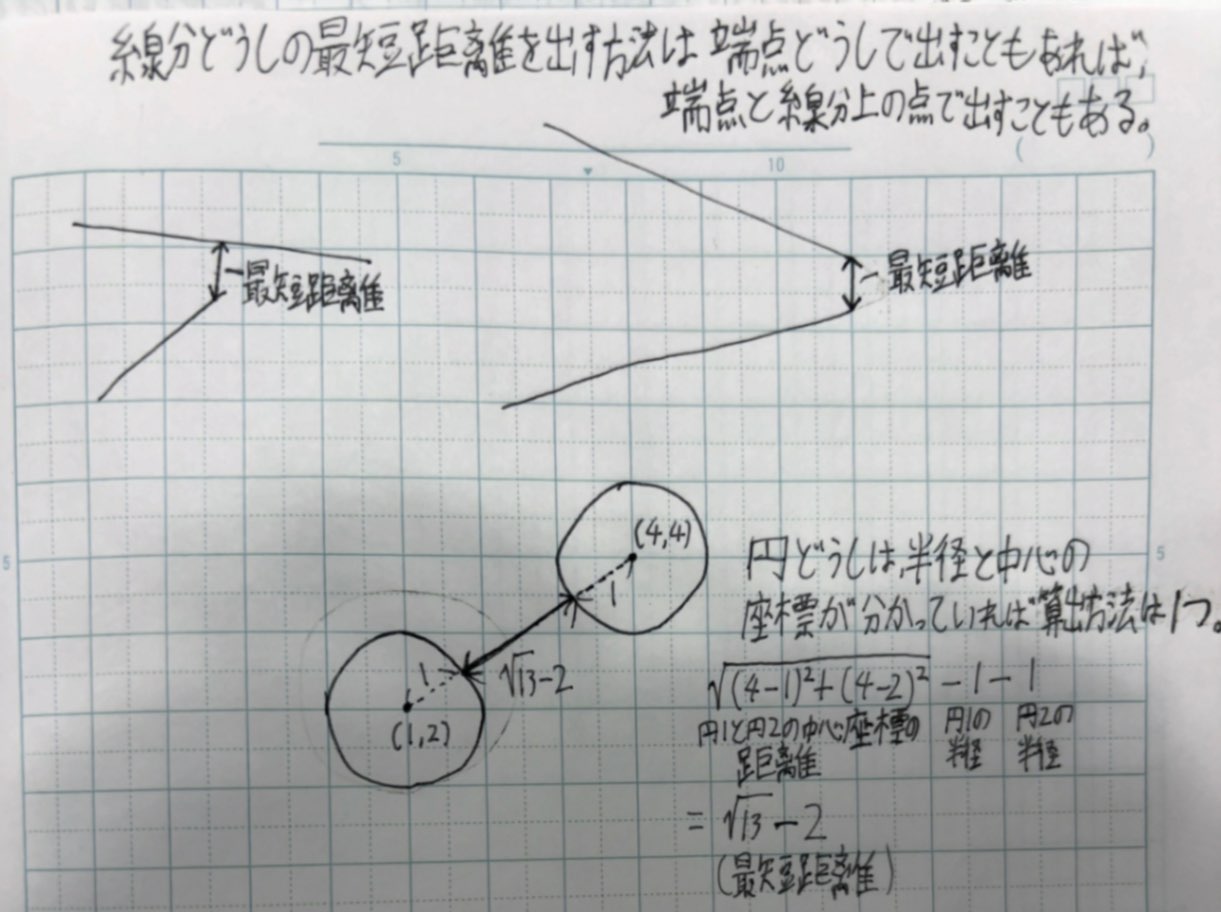 線分どうしの最短距離を出す方法は端点どうしで出すこともあれば、
端点と線分上の点で出すこともある。
5
10
( )
最短距離
最短距離
(4,4)
1
5
5
円どうしは、半径と中心の
座標が分かっていれば算出方法は1つ。
1
√13-2
(1,2)
√(4-1)²+(4-2)² -1-1
円1と円2の中心座標の
距離
円1の
半径
円2の
半径
= √13-2
(最短距離)